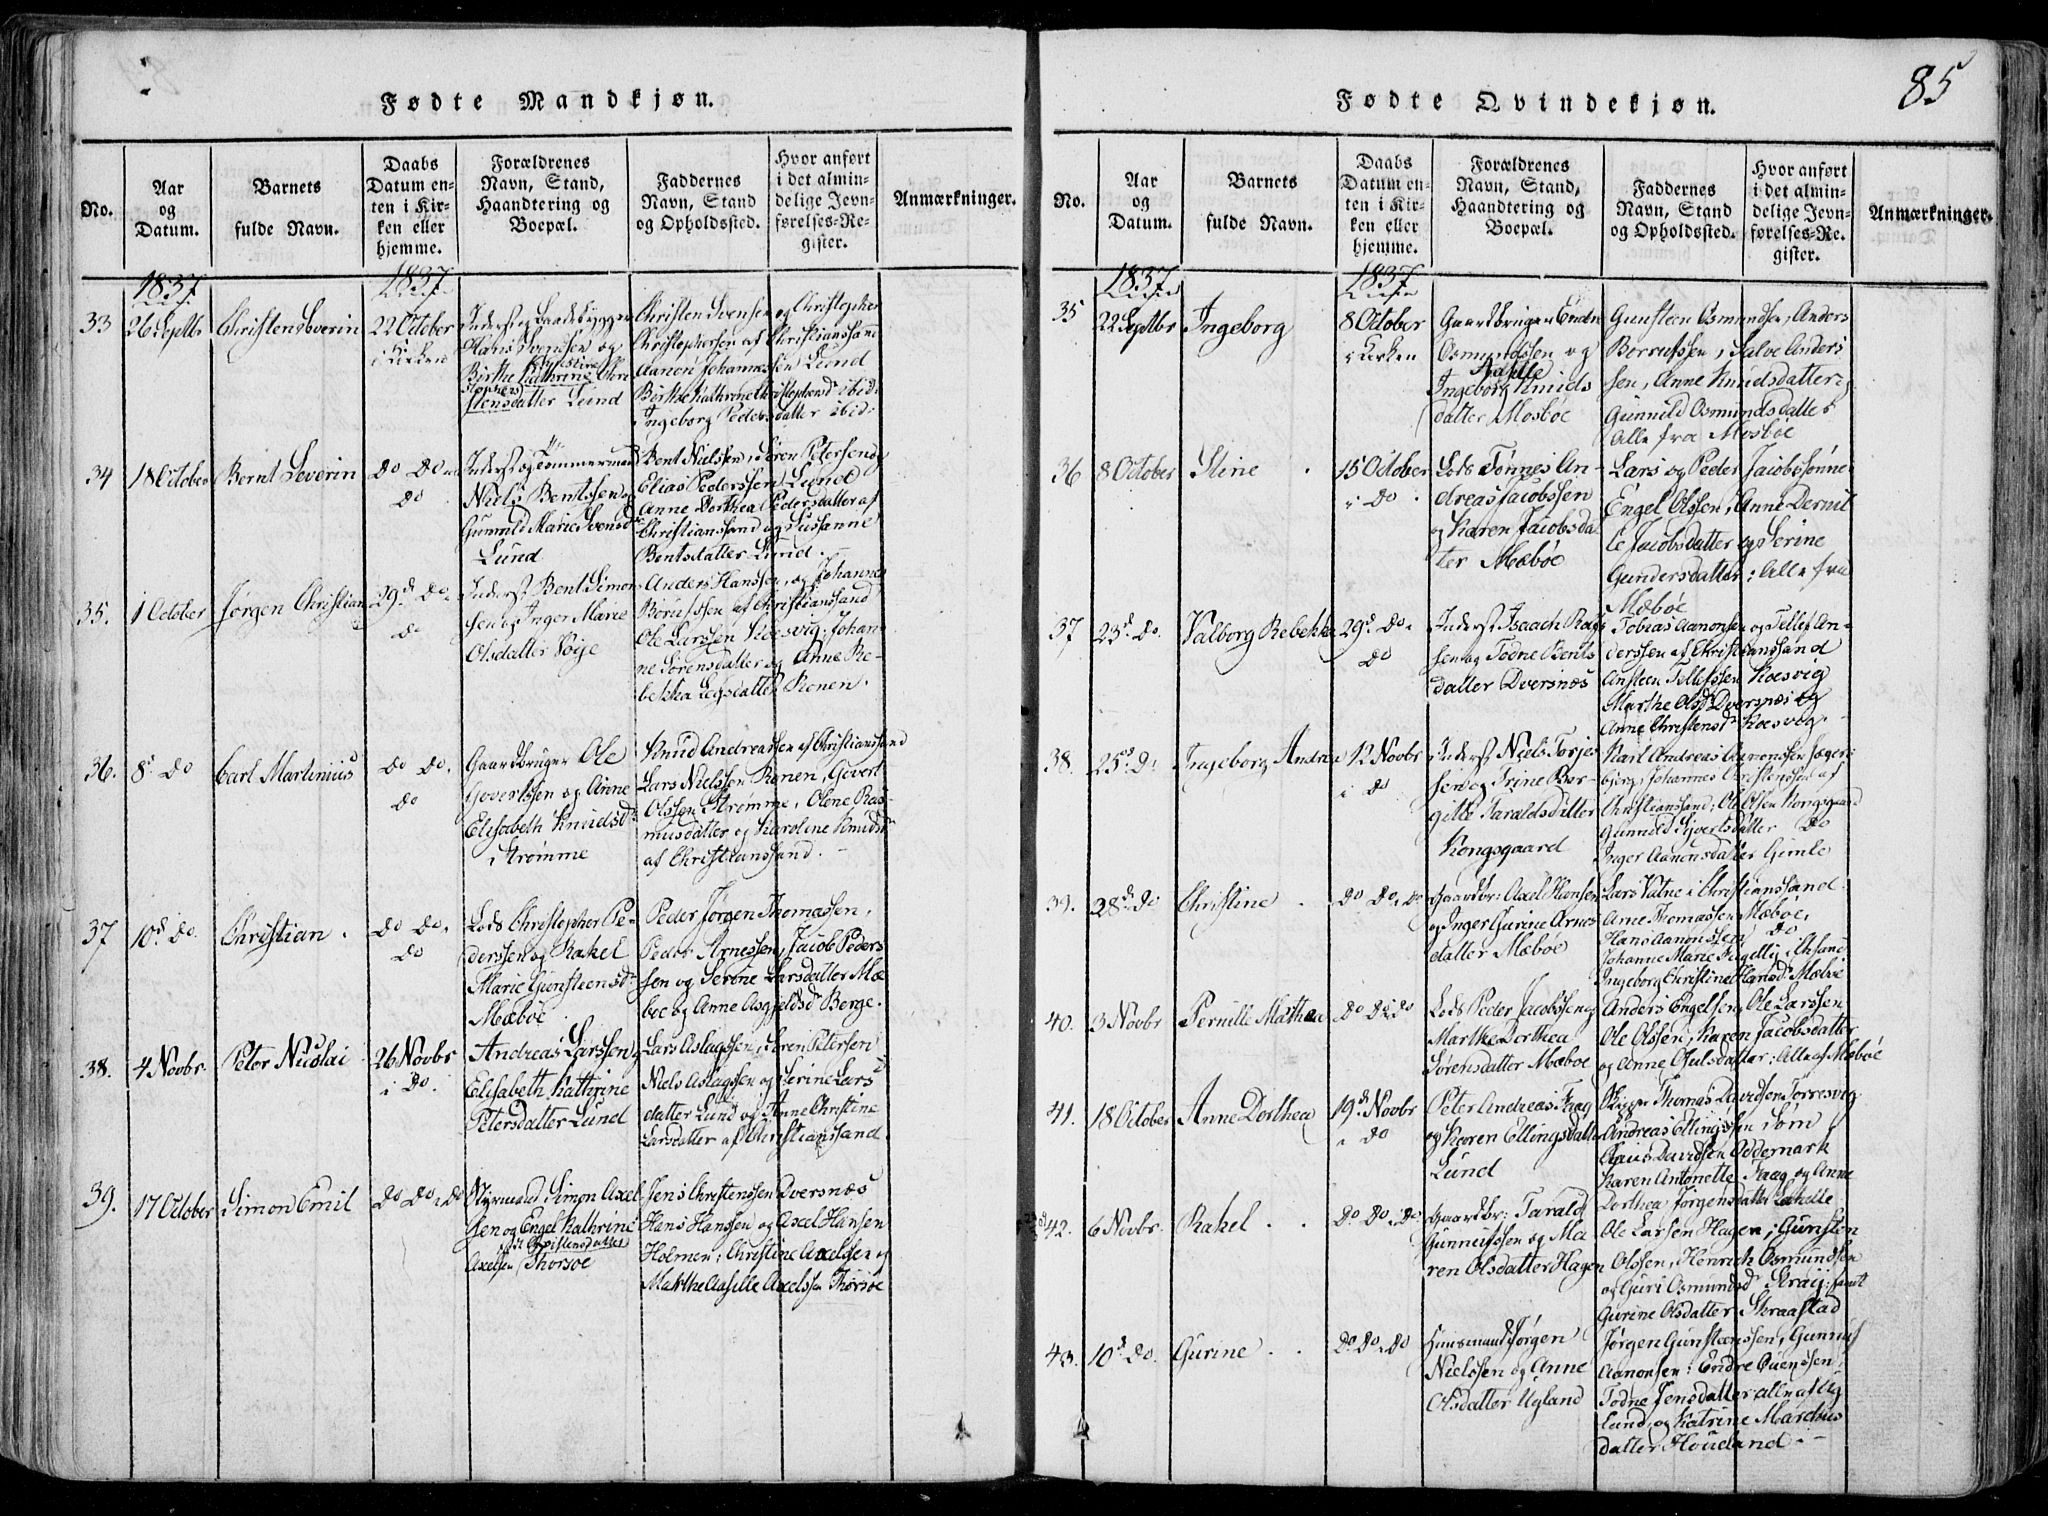 85
Fødte Mandkjøn.
No.
Aar
og
Datum.
Barnets
fulde Navn.
Daabs
Datum en-
ten i Kir-
ken eller
hjemme.
Forældrenes
Navn, Stand,
Haandtering og
Boepæl.
Faddernes
Navn, Stand
og Opholdssted.
Hvor anført
i det almin-
delige Jevn-
førelses-Re-
gister.
Anmærkninger.
1837
1837
33
26 Septbr
Christen Severin
22 October
i Kirken
Inderst og Baadebygger
Hans Svensen og
Birthe Kathrine
Lund
Christen Svensen og Christopher
Christophersen af Christianssand
Aanon Johannessen Lund
Birthe Kathrine Christophersd ibid:
Ingeborg Pedersdatter ibid:
34
1 October
Bernt Severin
Do Do
Do
Inderst og Tømmermand
Niels Bentssen og
Gunnild Marie Svensd
Lund
Bent Nielssen, Søren Petersen og
Elias Pederssen Lund
Anne Dorthea Pedersdatter af
Christianssand og Sussanne
Bentsdatter Lund.
35.
1 October
Jørgen Christian
29d Do
Do
Inderst Bent Simon-
sen og Inger Marie
Olsdatter Vøie
Anders Hanssen, og Johannes
af Christianssand
Ole Larssen Koesvig: Johan-
ne Sørensdatter og Anne Re-
bekka Leg
Ronen.
36.
8d Do
Carl Martinius
Do Do.
Do
Gaardbruger Ole
Govertssen og Anne
Elisabeth Knudsd
Strømme
Knud Andreassen af Christianssand
Lars Nielssen Ronen, Govert
Olssen Strømme, Olene Ras-
musdatter og Karoline Knudsd
af Christianssand.
37
10d Do.
Christian.
Do Do.
Do
Lods Christopher Pe-
derssen og Rakel
Marie Gunsteensd
Mæbøe
Peder Jørgen Thomassen,
Peder Arnessen, Jacob Peders
sen og Serine Larsdatter Mæ
bøe og Anne Asgjeldsd Berge.
38.
4 Novbr.
Peter Nicolai
26 Novbr
i Do.
Andreas Larssen og
Elisabeth Kathrine
Petersdatter Lund
Lars Aslagssen, Søren Petersen
Niels Aslagssen og Serine Lars
datter Lund og Anne Christine
Larsdatter af Christianssand.
39.
17 October
Simon Emil
Do Do i Do
Styrmand Simon Axel
sen og Engel Kathrine
Christensdatter
Axelsen Thorsøe
Jens Christenssen Dversnæs
Hans Hanssen og Axel Hansen
Holmen; Christine Axelssen og
Marthe Aasille Axelssen Thorsøe
Fødte Qvindekjøn.
No.
Aar
og
Datum.
Barnets
fulde Navn.
Daabs
Datum en-
ten i Kir-
ken eller
hjemme.
Forældrenes
Navn, Stand,
Haandtering og
Boepæl.
Faddernes
Navn, Stand
og Opholdssted.
Hvor anført
i det almin-
delige Jevn-
førelses-Re-
gister.
Anmærkninger.
1837
1837
35
22 Septbr
Ingeborg
8 October
i Kirken
Gaardbruger Endre
Osmundssen og
Ingeborg Knuds
datter Mosbøe
Gunsteen Osmundsen, Anders
Salve Anders
sen, Anne Knudsdatter og
Gunnild Osmundsdatter
Alle fra Mosbøe
36
8 October
Stine
15 October
i Do
Lods Tønnes An-
dreas Jacobssen
og Karen Jacobsda
ter Mæbøe
Lars og Peder Jacobssønner
Engel Olssen, Anne Pernil
le Jacobsdatter og Serine
Gundersdatter: Alle fra
Mæbøe
37
23d Do.
Valborg Rebekka
29d Do.
Do
Inderst Isaach
sen og Todne Bents
datter Dversnæs
Tobias Aanonsen og Tellef An-
derssen af Christianssand
Ansteen Tellefssen Koesvig
Marthe Olsd Dversnæs og
Anne Christensd Koesvig.
38.
25d D:
Ingeborg Andrea
12 Novbr
i Do
Inderst Niels Torjes
sen og Trine Bor-
gitte Haraldsdatter
Kongsgaard
Karl Andreas Aanonsen
Johannes Christenssen af
Christianssand; Ole Olsen Kongsgaard
Gunnild Sjvertsdatter Do
Inger Aanonsdatter Gimle
39.
28d Do
Christine
Do Do. Do
Gaardbr: Axel Hansen
og Inger Gurine Arnes
datter Mæbøe
Lars Vatne i Christianssand.
Arne Thomassen Mæbøe,
Hans Aanonssen Do
Johanne Marie
Ingeborg Christine Hansd. Mæbøe
40.
3 Novbr
Pernille Mathea
Do Do i Do
Lods Peder Jacobssen og
Marthe Dorthea
Sørensdatter Mæbøe
Anders Engelsen, Ole Larssen,
Ole Olssen, Karen Jacobsdatter
og Anne
datter: Alle af Mæbøe
41.
18 October
Anne Dorthea
19d Novbr
i Do
Peter Andreas Faag
og Karen Ellingsdatter
Lund
Skipper Thomas Davidsen Torresvig
Andreas Ellingssen Søm
Davidsen Oddemark
Karen Antonette Faag og Anne
Dorthea Jørgensdatter
42.
6 Novbr.
Rakel
Do Do. Do
Gaardbr: Tarald
Gunnufssen og Ma
ren Olsdatter Hagen
Ole Larsen Hagen; Gunsten
Olssen, Henrich Osmundsen
og Guri Osmundsd Straij: samt
Gurine Olsdatter Straastad
43.
10d Do.
Gurine
Do Do. Do
Huusmand Jørgen
Nielssen og Anne
Olsdatter Ugland
Jørgen Gunstenssen, Gunnuf
Aanonsen: Endre
Todne Jensdatter alle af Ug
land, og Katrine Marchus
datter Houeland